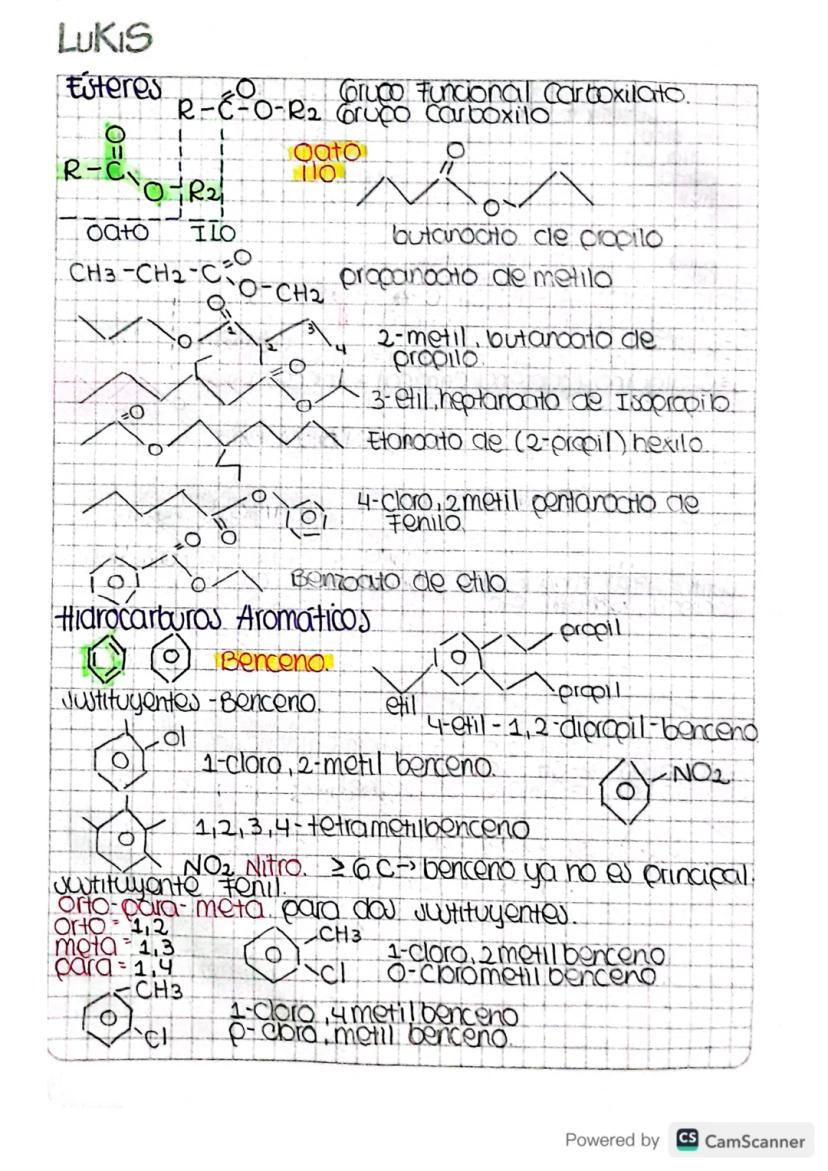 LUKIS
Ésteres
R-C-O-R2
O
Grupo Funcional Carboxilato.
Grupo Carboxilo
O
R-C
O-R2
oato
ilo
O
O
oato ILO
butanoato de propilo
CH3-CH2-C=O
O-CH2
propanoato de metilo
O
O
1
2
3
4
2-metil, butanoato de
propilo.
O
O
3-etil, heptanoato de Isopropilo.
O
O
Etanoato de (2-propil) hexilo.
O
O
4-cloro, 2 metil pentanoato de
Fenilo.
O
O
Benzoato de etilo.
Hidrocarburos Aromáticos
Benceno.
propil
propil
etil
4-etil-1,2-dipropil-benceno
Sustituyentes - Benceno.
Cl
1-cloro, 2-metil benceno.
NO2
1,2,3,4-tetrametilbenceno
NO2 Nitro. ≥6C→ benceno ya no es principal.
Sustituyente Fenil.
Orto-para-meta. para dos sustituyentes.
orto = 1,2
meta = 1,3
para = 1,4
CH3
Cl
1-cloro, 2 metil benceno
O-clorometil benceno
CH3
Cl
1-cloro, 4 metil benceno
p-cloro, metil benceno.
Powered by CS CamScanner